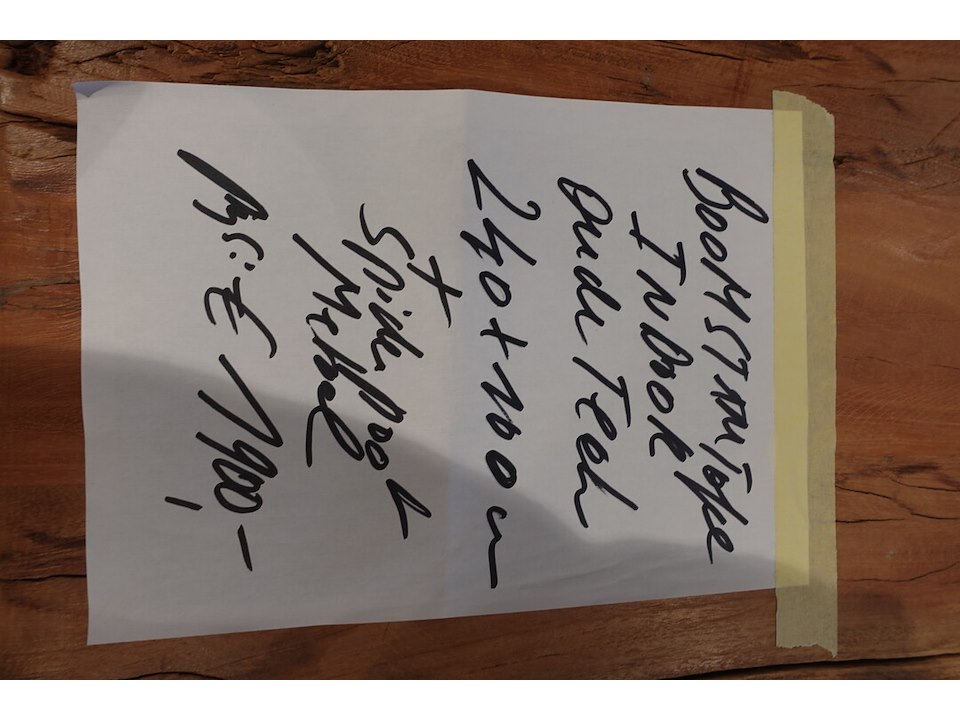 BOOMSTAMTAFEL
INDOOR
Oude Teak
240 x 100 cm
+
Spider Poot
Metaal
Prijs: € 1900,-